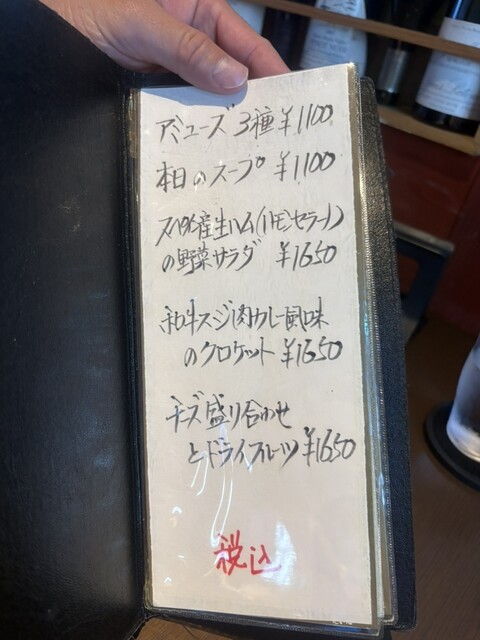 アミューズ 3種 ¥1100
本日のスープ ¥1100
スペイン産生ハム(ハモンセラーノ)
の野菜サラダ ¥1650
和牛スジ肉カレー風味
のクロケット ¥1650
チーズ盛り合わせ
とドライフルーツ ¥1650
税込